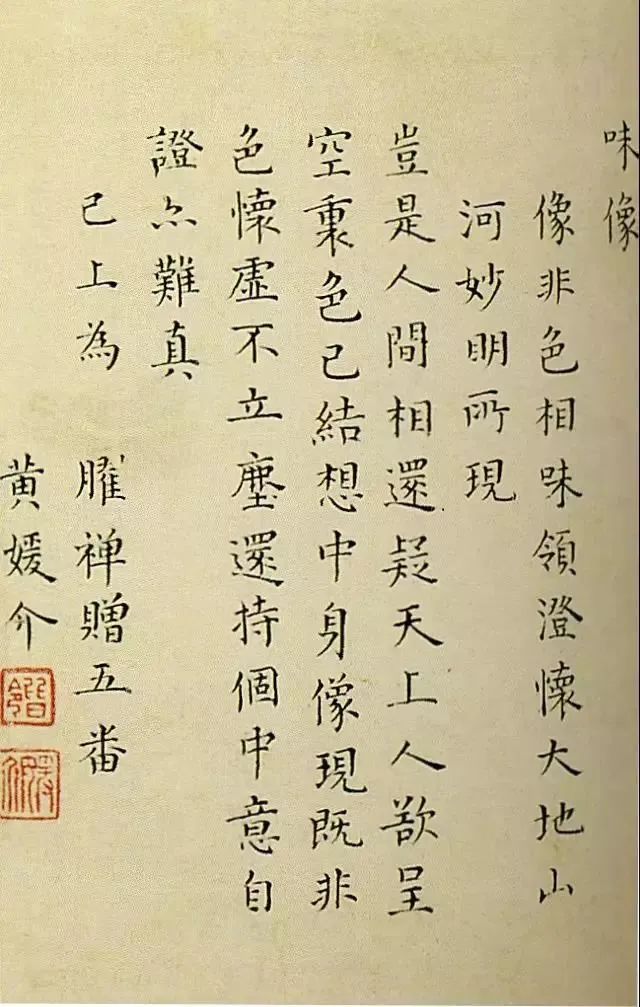 味像
像非色相味領澄懷大地山
河妙明所現
豈是人間相還疑天上人欲呈
空裏色已結想中身像現既非
色懷虛不立塵還持個中意自
證亦難真
已上為 臞禅贈五番
黄媛介
皆令